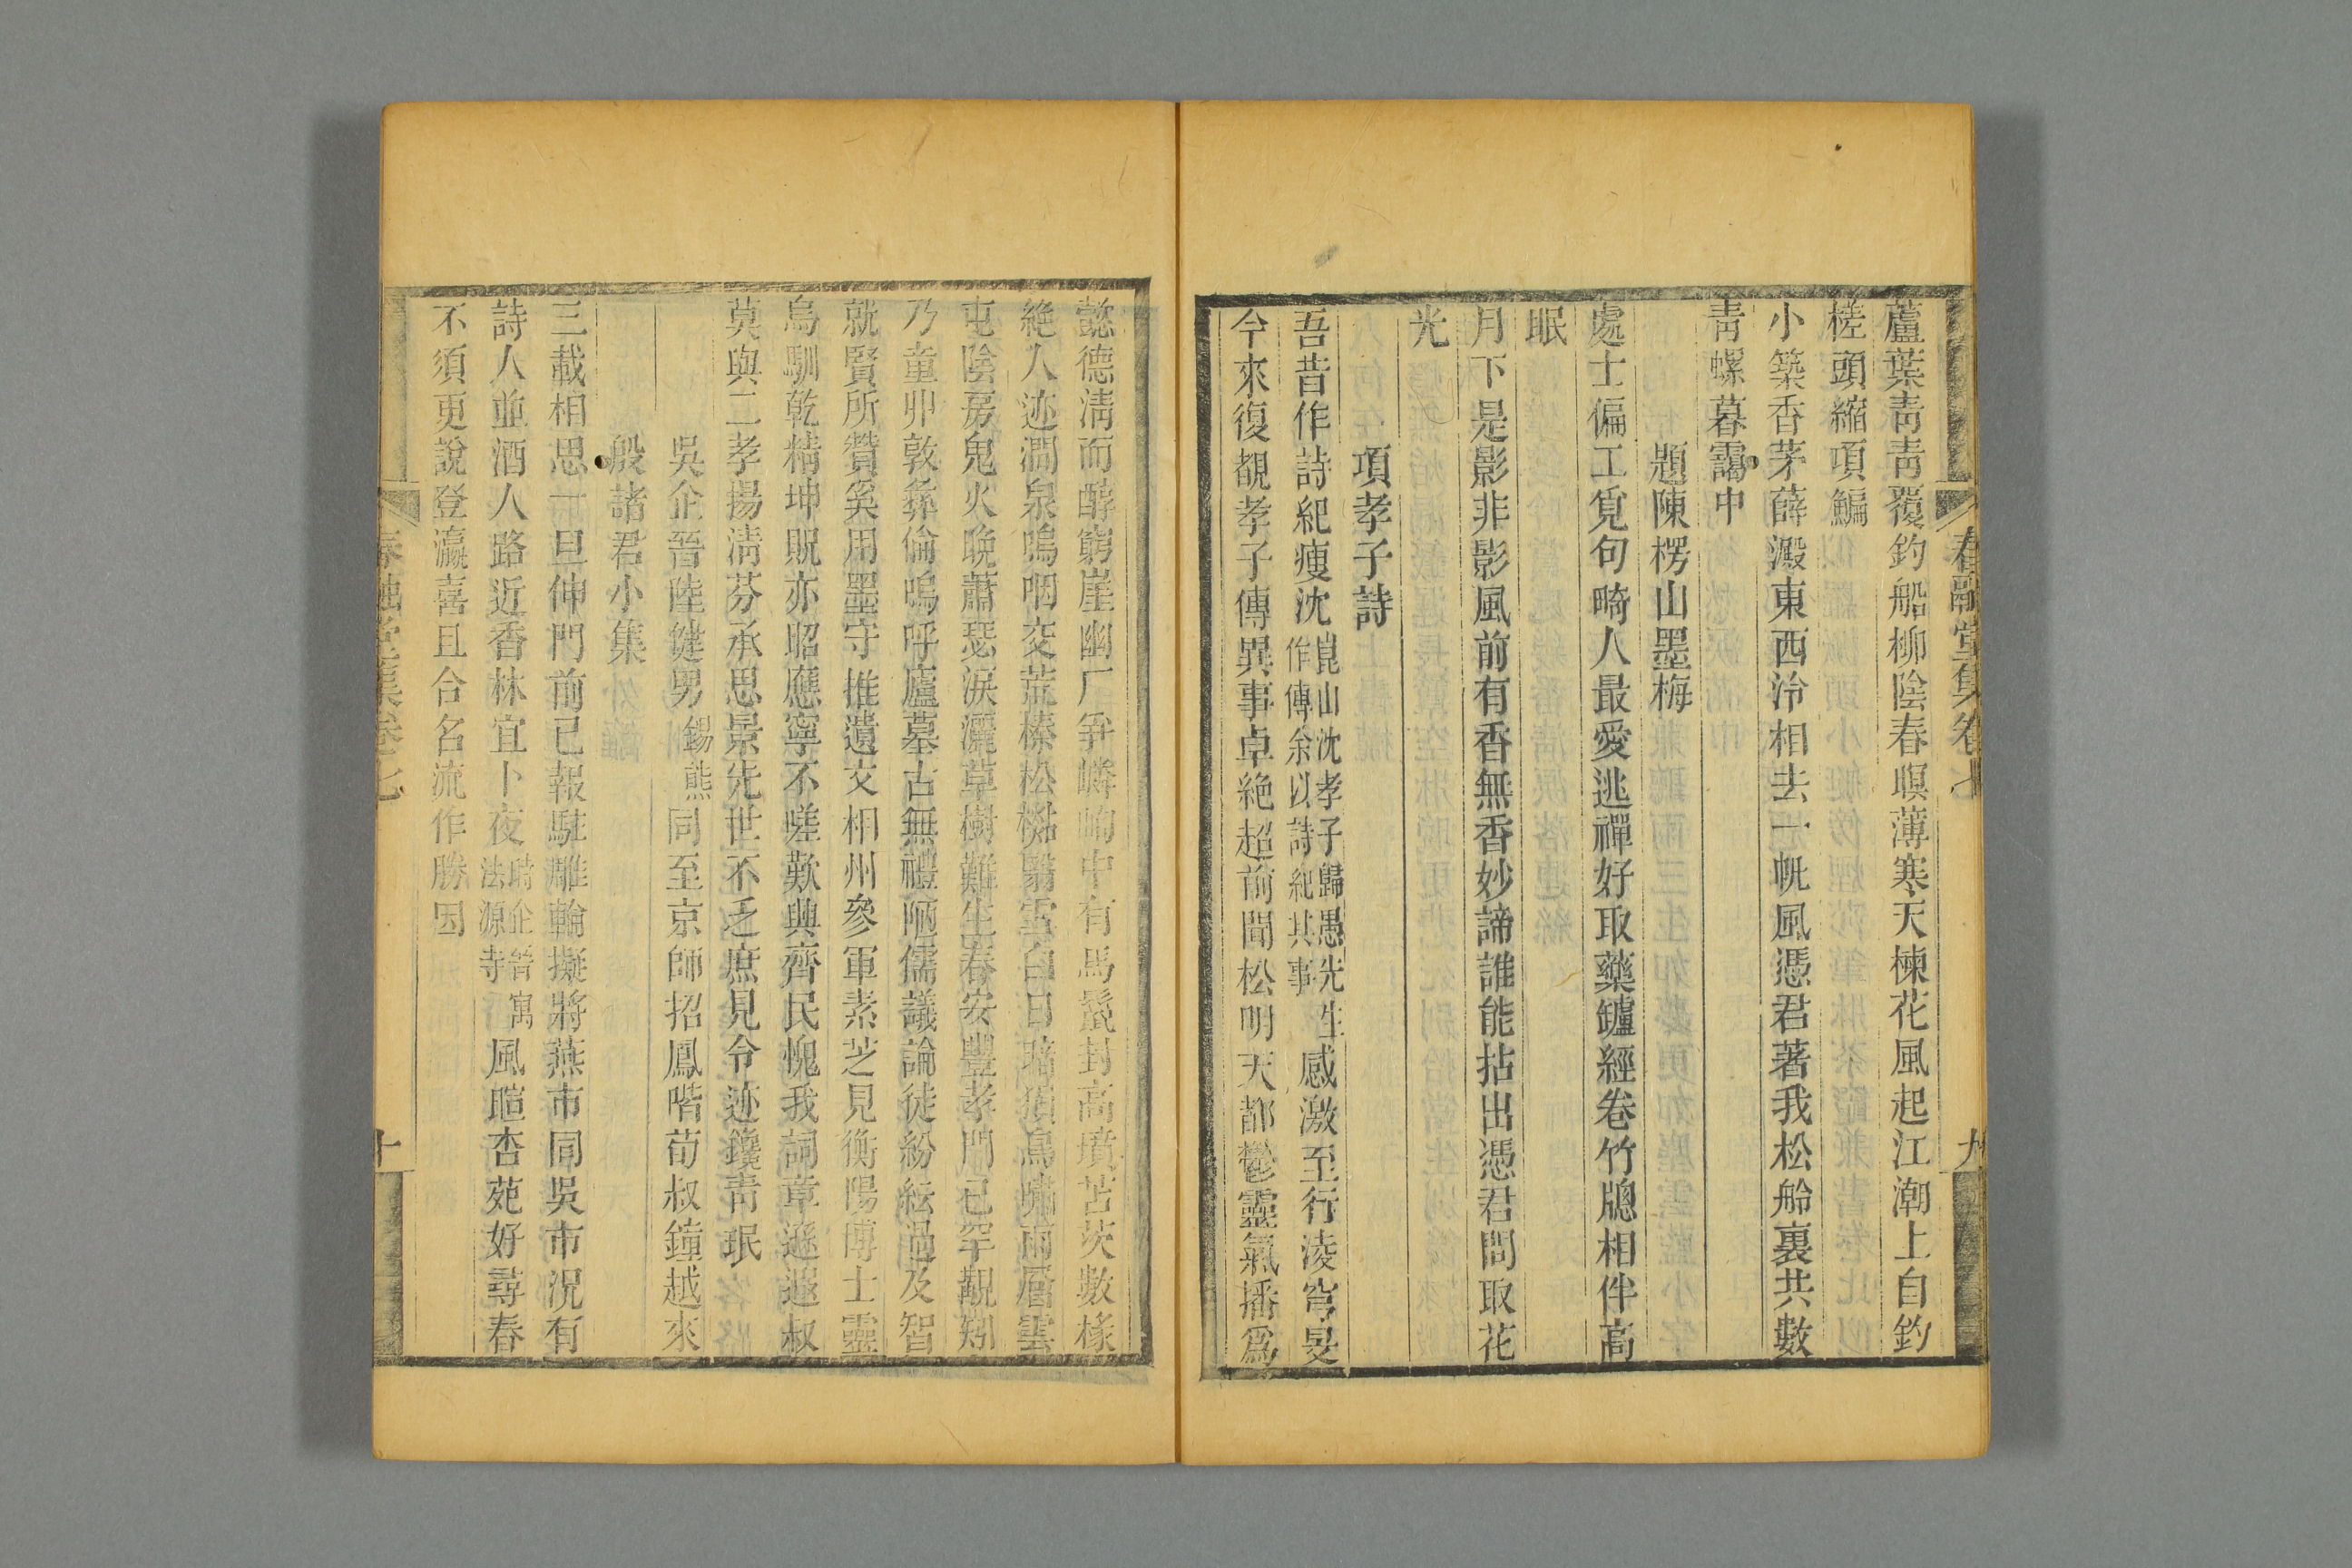 蘆葉青青覆釣船柳陰春暝薄寒天楝花風起江潮上自釣
槎頭縮項鯿
小築香茅薛澱東西泠相去一帆風憑君著我松舲裏共數
青螺暮靄中
題陳楞山墨梅
處士偏工覓句畸人最愛逃禪好取藥鑪經卷竹牕相伴高
眠
月下是影非影風前有香無香妙諦誰能拈出憑君問取花
光
項孝子詩
吾昔作詩紀瘦沈崑山沈孝子歸愚先生作傳余以詩紀其事感激至行淩穹旻
今來復覩孝子傳異事卓絶超前聞松明天都鬱靈氣播爲
春融堂集卷七
九
懿德淸而醇窮崖幽厂爭嶙峋中有馬鬛封高墳苫茨數椽
絶人迹澗泉嗚咽交荒榛松楸翳雪白日瞑猿鳥嘯雨層雲
屯陰房鬼火晚蕭瑟淚灑草樹難生春安豐孝門已罕觀矧
乃童丱敦彝倫嗚呼廬墓古無禮陋儒議論徒紛紜過及智
就賢所贊奚用墨守推遺文相州參軍素芝見衡陽博士靈
烏馴乾精坤貺亦昭應寧不嗟歎興齊民愧我詞章遜遐叔
莫與二孝揚淸芬承思景先世不乏庶見令迹鑱靑珉
吳企晉陸健男錫熊同至京師招鳳喈荀叔鐘越來
殷諸君小集
三載相思一旦伸門前已報駐雕輪擬將燕市同吳市況有
詩人並酒人路近香林宜卜夜時企晉寓法源寺風暄杏苑好尋春
不須更說登瀛喜且合名流作勝因
春融堂集卷七
十